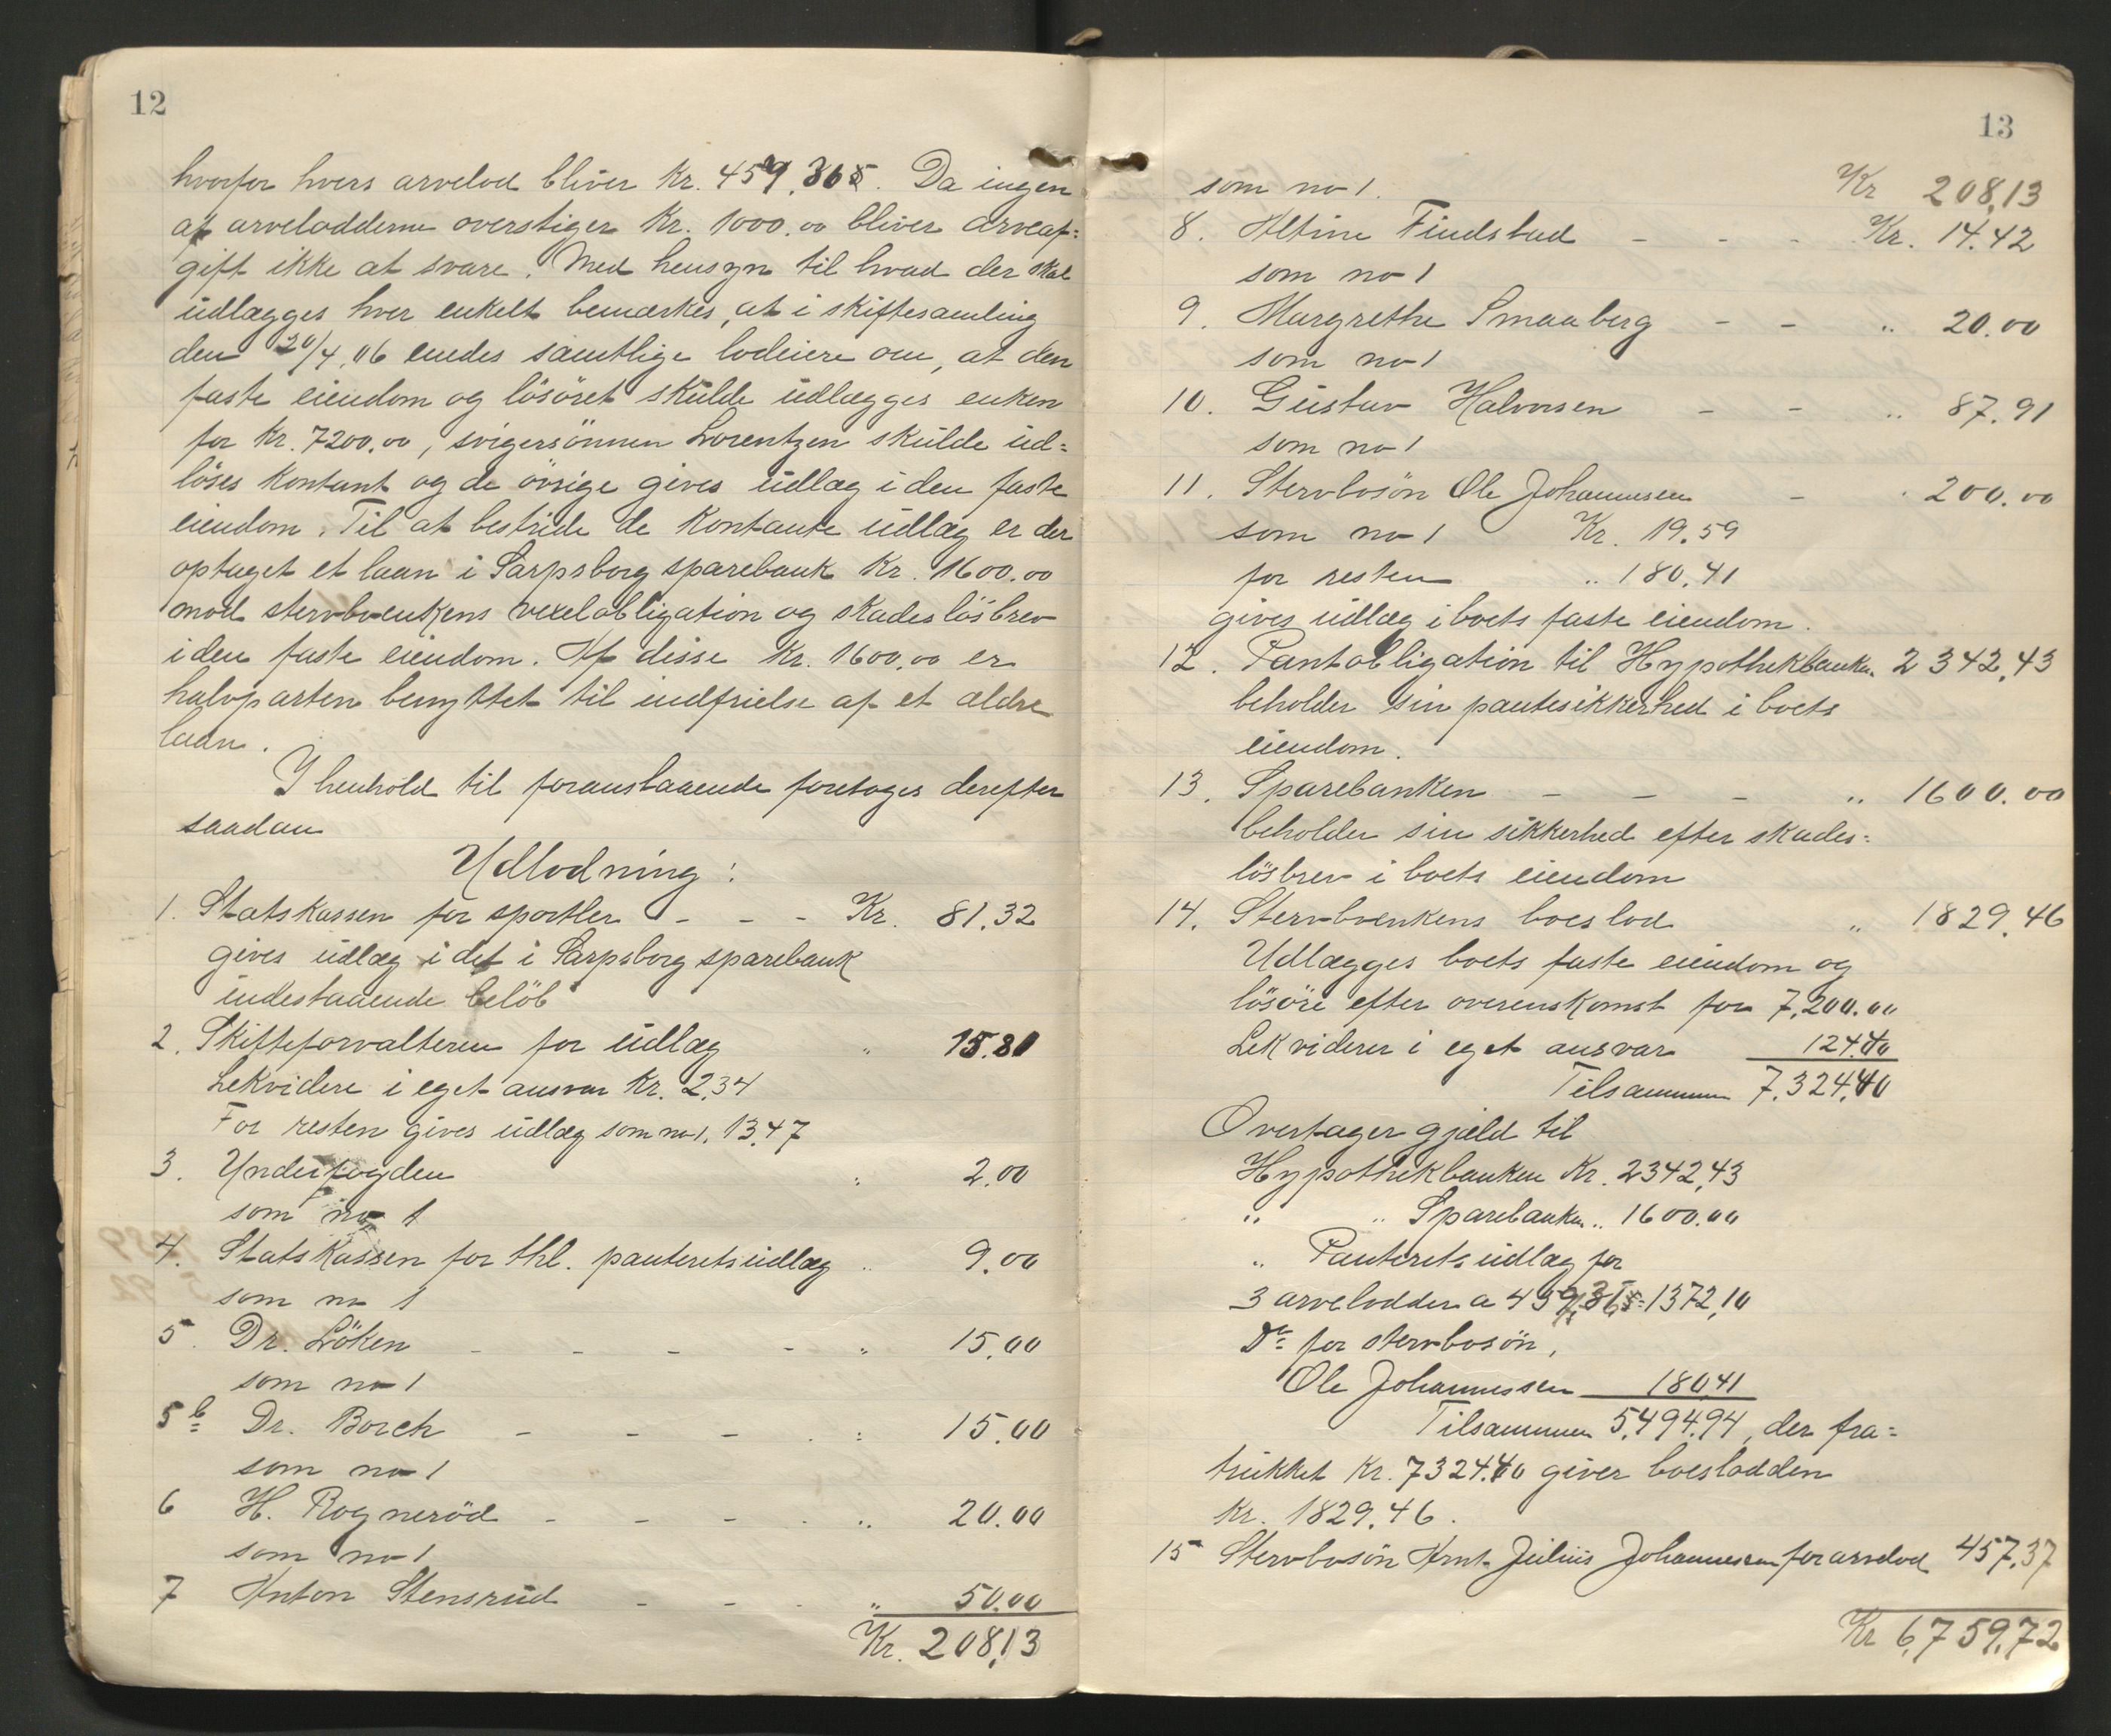 12
hvorfor hvers arvelod bliver Kr. 457,365. Da ingen
af arvelodderne overstiger Kr. 1000.00 bliver arveaf=
gift ikke at svare. Med hensyn til hvad der skal
udlægges hver enkelt bemærkes, at i skiftesamling
den 20/4.06 enedes samtlige lodeiere om, at den
faste eiendom og lösöret skulde udlægges enken
for Kr. 7200.00, svigersönnen Lorentzen skulde ud=
löses kontant og de övrige gives udlæg i den faste
eiendom. Til at bestride de kontante udlæg er der
optaget et laan i Sarpsborg sparebank Kr. 1600.00
mod stervboenkens vexelobligation og skadeslösbrev
i den faste eiendom. Af disse Kr. 1600.00 er
halvparten benyttet til indfrielse af et ældre
laan.
I henhold til foranstaaende foretages derefter
saadan
Udlodning:
1. Statskassen for sportler - - - Kr. 81.32
gives udlæg i det i Sarpsborg sparebank
indestaaende belöb
2. Skifteforvalteren for udlæg " 15.81
Lekvidere i eget ansvar Kr. 2.34
For resten gives udlæg som no 1. 13.47
3. Underfogden " 2.00
som no 1
4. Statskassen for thl. panteretsudlæg " 9.00
som no 1
5. Dr. Löken - - - - " 15.00
som no 1
5b Dr. Borch - - - " 15.00
som no 1
6 H. Rognerød - - - - " 20.00
som no 1
7 Anton Stensrud - - - " 50.00
Kr. 208,13
13
som no 1. Kr 208,13
8. Altine Findstad - - - Kr. 14.42
som no 1
9. Margrethe Smaaberg - - " 20.00
som no 1
10. Gustav Halvorsen - - " 87.91
som no 1
11. Stervbosön Ole Johannesen - " 200.00
som no 1 Kr. 19.59
for resten " 180,41
gives udlæg i boets faste eiendom.
12. Pantobligation til Hypothekbanken 2342,43
beholder sin pantesikkerhed i boets
eiendom.
13. Sparebanken - - - " 1600.00
beholder sin sikkerhed efter skades=
lösbrev i boets eiendom
14. Stervboenkens boeslod " 1829.46
Udlægges boets faste eiendom og
lösöre efter overenskomst for 7,200.00
Lekviderer i eget ansvar 124.40
Tilsammen 7.324,40
Overtager gjæld til
Hypothekbanken Kr. 2342,43
" " Sparebanken " 1600.00
" Panteretsudlæg for
3 arvelodder a 457,365= 1372,10
Do for stervbosön,
Ole Johannessen 180,41
Tilsammen 5,494.94, der fra=
trukket Kr. 7324.40 giver boeslodden
Kr. 1829.46.
15 Stervbosön Arnt Julius Johannessen for arvelod 457,37
Kr 6,759,72